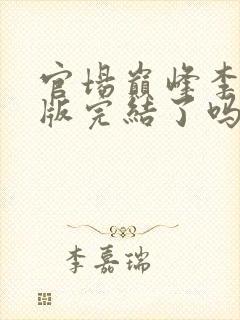 官場巔峰李
版完結了吗
李嘉瑞